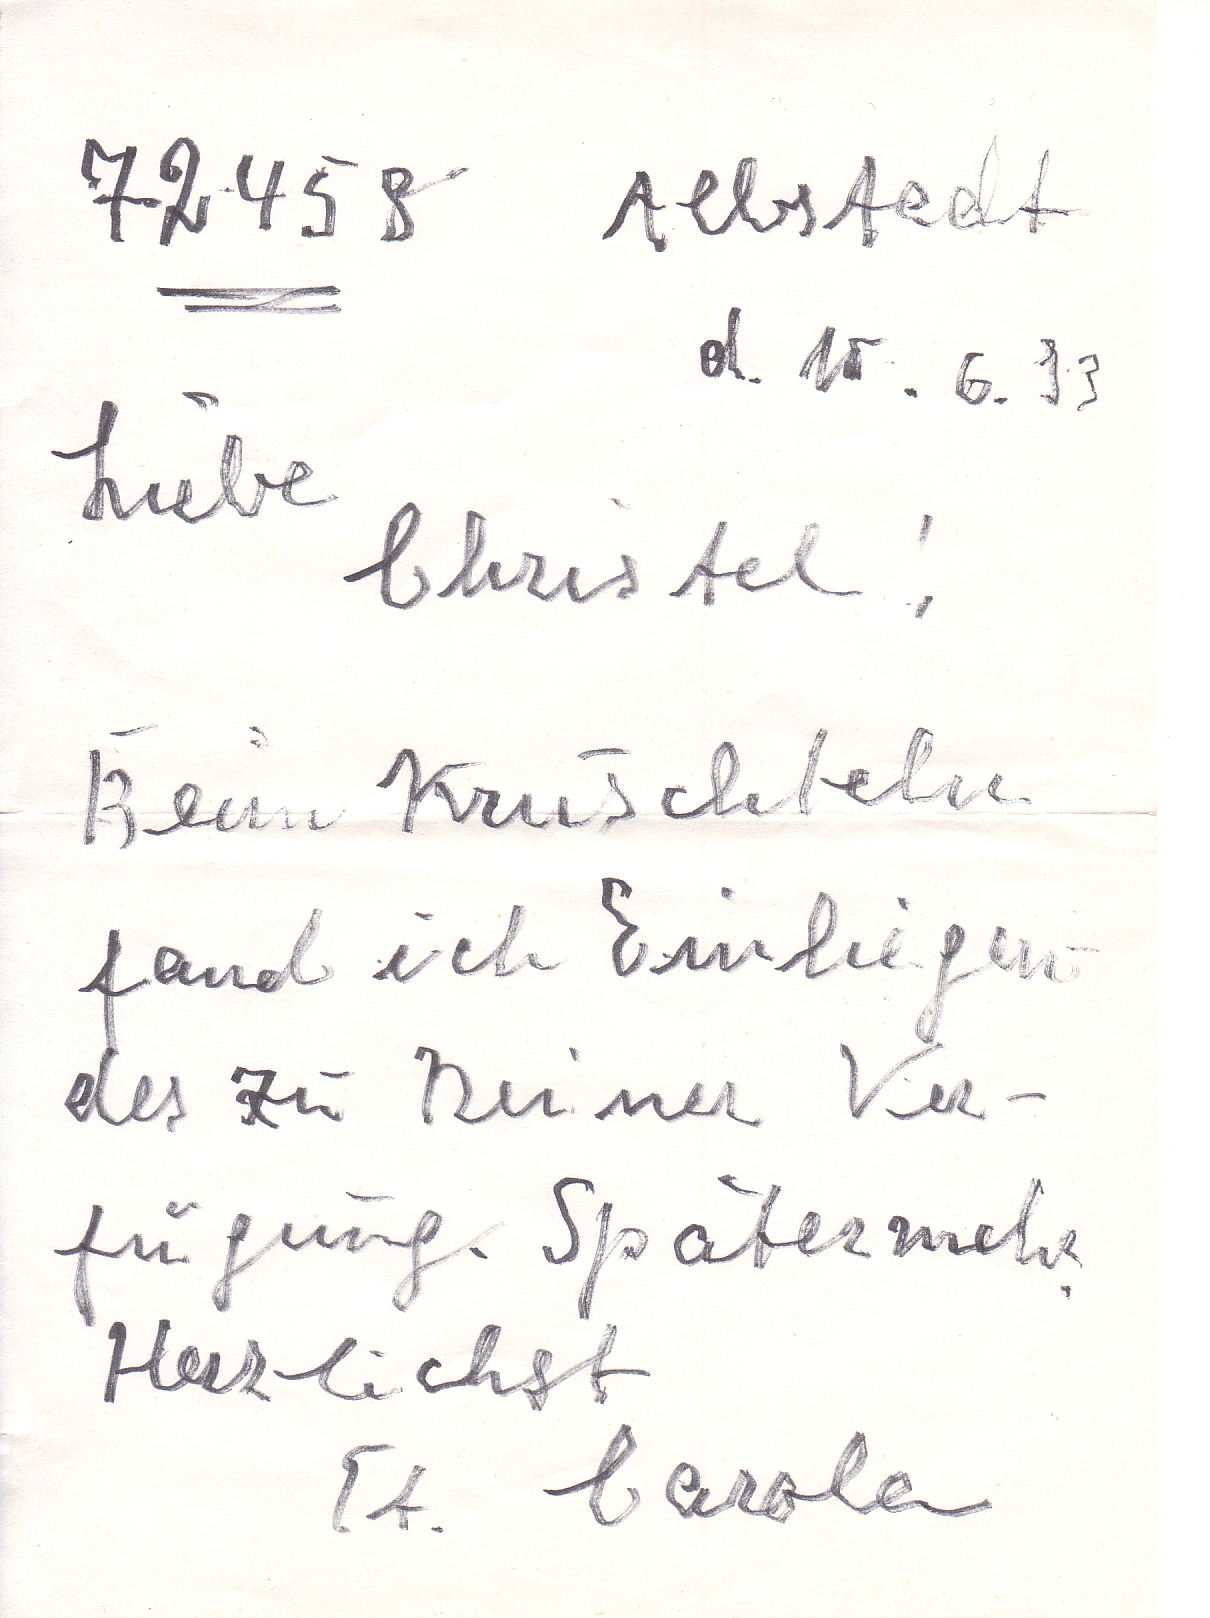 72458 Albstadt
d. 15. 6. 93
Liebe
Christel!
Beim Kruschteln
fand ich Einliegen
des zu Deiner Ver-
fügung. Später mehr.
Herzlichst
Tt. Carola